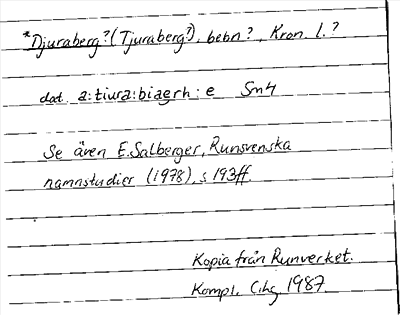 *Djuraberg? (Tjuraberg?), bebn?, Kron. l.?
dat. a:tiura:biagrh:e Sm4
Se även E. Salberger, Runsvenska
namnstudier (1978), s 193ff.
Kopia från Runverket.
Kompl. 1987